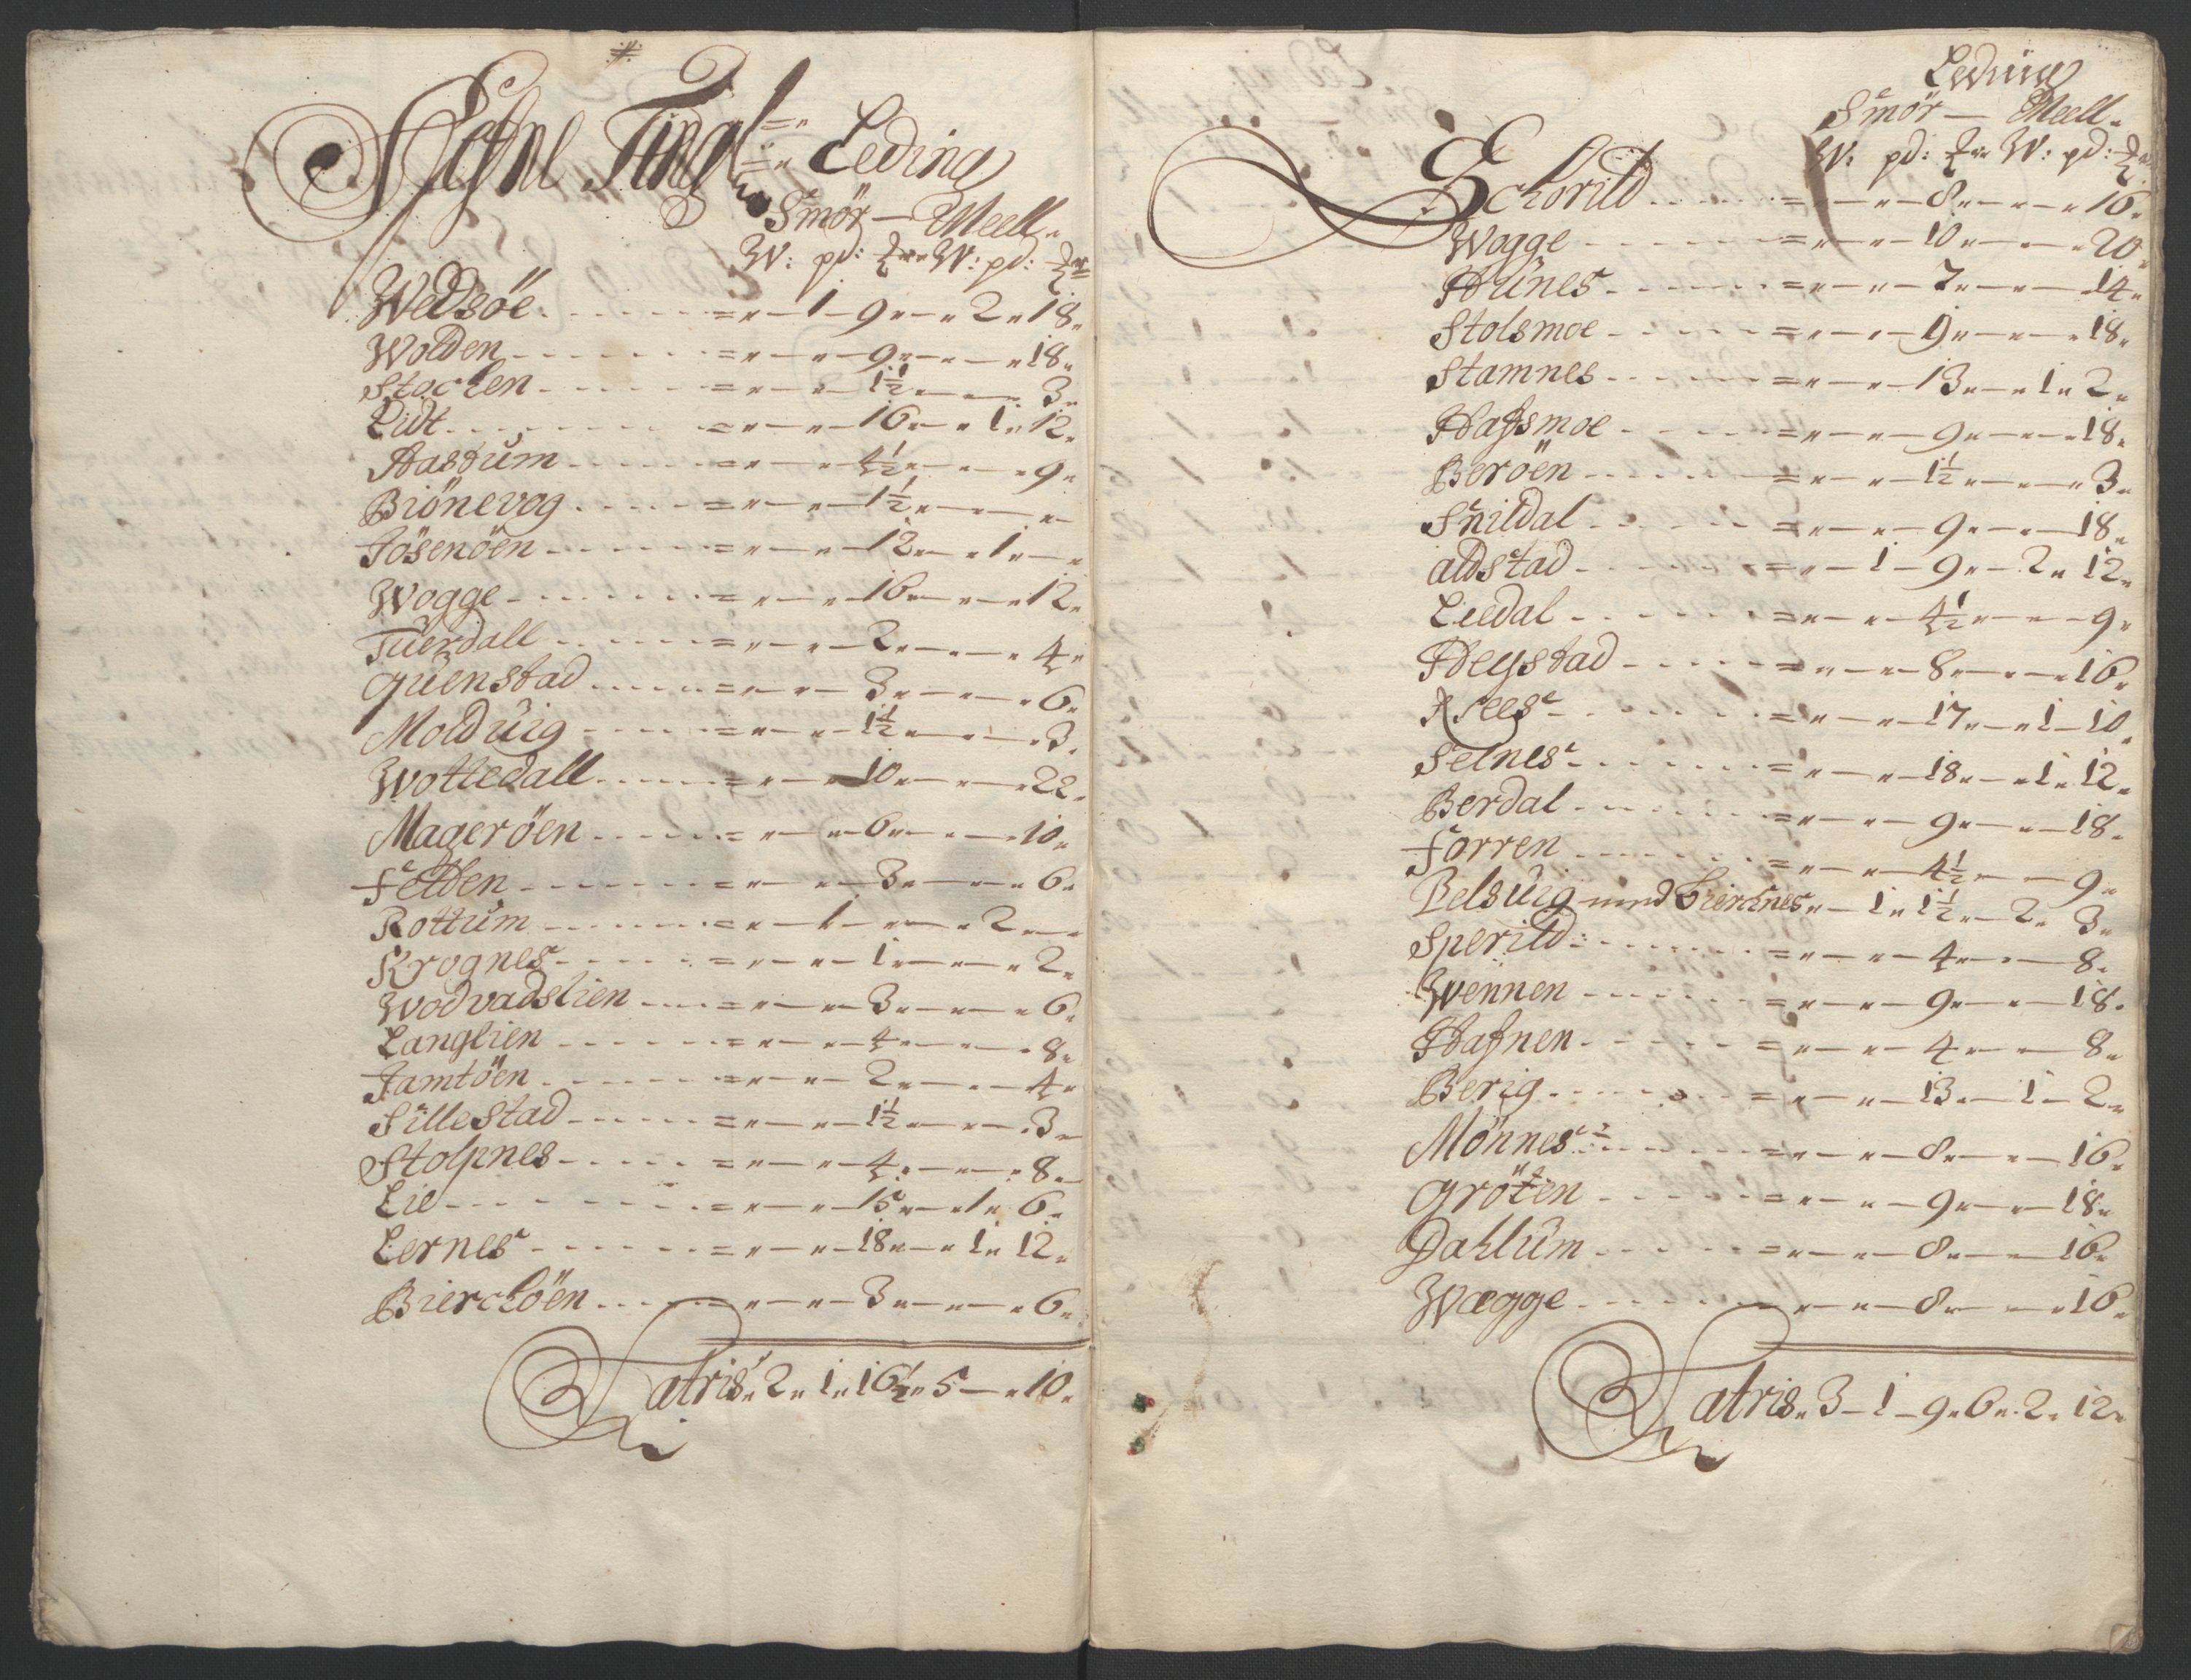 Hefne Ting Leding
Smör — Meell
W: pd: W: pd:
Wedsöe - - - - - - = „ — 1 — 9 „ — „ 2 „ 18 „
Wolden - - - - - - = „ — „ — 9 „ — „ — „ 18 „
Stochen - - - - - = „ — „ — 1½ „ — „ — 3 „
Lidt - - - - - - - = „ — „ — 16 „ — „ 1 „ 12 „
Hastum - - - - - = „ — „ — 4½ „ — „ — „ 9 „
Biönevog - - - - = „ — „ — 1½ „ — „ — „
Jösenöen - - - - - = „ — „ — 12 „ — „ 1 „ — „
Wogge - - - - - - = „ — „ — 16 „ — „ — „ 12 „
Tuerdall - - - - - = „ — „ — 2 „ — „ — „ 4 „
Quenstad - - - - - = „ — „ — 3 „ — „ — „ 6 „
Molduig - - - - - = „ — „ — 1½ „ — „ — „ 3 „
Wottedall - - - - = „ — „ — 10 „ — „ — „ 22 „
Mageröen - - - - = „ — „ — 6 „ — „ — „ 10 „
Fetden - - - - - - = „ — „ — 3 „ — „ — „ 6 „
Rottum - - - - - - = „ — 1 — „ — „ 2 „ — „
Krognes - - - - - = „ — „ — 1 „ — „ — „ 2 „
Wodvadslien - - - = „ — „ — 3 „ — „ — „ 6 „
Langlien - - - - - = „ — „ — 4 „ — „ — „ 8 „
Jamtöen - - - - - = „ — „ — 2 „ — „ — 4 „
Sillestad - - - - - = „ — „ — 1½ „ — „ — „ 3 „
Stolpnes - - - - - = „ — „ — 4 „ — „ — „ 8 „
Lie - - - - - - - - = „ — „ — 15 „ — „ 1 „ 6 „
Lernes - - - - - - = „ — „ — 18 „ — „ 1 „ 12 „
Bierchöen - - - - = „ — „ — 3 „ — „ — „ 6 „
Latris „ 2 „ 1 „ 16½ „ 5 — „ 10 „
Leding
Smör — Meell „
W: pd: W: pd:
Echorild - - - - - = „ — „ — 8 „ — „ — „ 16 „
Wogge - - - - - - = „ — „ — 10 „ — „ — „ 20 „
Hunes - - - - - - = „ — „ — 7 „ — „ — 14 „
Stolsmoe - - - - - = „ — „ — 9 „ — „ — „ 18 „
Stamnes - - - - - = „ — „ — 13 „ — „ 1 „ 2 „
Hafsmoe - - - - - = „ — „ — 9 „ — „ — „ 18 „
Beröen - - - - - - = „ — „ — 1½ „ — „ — „ 3 „
Snildal - - - - - - = „ — „ — 9 „ — „ — 18 „
aldstad - - - - - - = „ — 1 — 9 „ — 2 „ 12 „
Leedal - - - - - - = „ — „ — 4½ „ — „ — 9 „
Hegstad - - - - - = „ — „ — 8 „ — „ — „ 16 „
Krees - - - - - - = „ — „ — 17 „ — „ 1 — 10 „
Selnes - - - - - - = „ — „ — 18 „ — „ 1 „ 12 „
Berdal - - - - - - = „ — „ — 9 „ — „ — 18 „
Forren - - - - - - = „ — „ — 4½ „ — „ — 9 „
Belsuig med Kierchnes „ — 1 „ 1½ „ — 2 „ 3 „
Sperild - - - - - - = „ — „ — 4 „ — „ — 8 „
Wennen - - - - - = „ — „ — 9 „ — „ — 18 „
Hafnen - - - - - = „ — „ — 4 „ — „ — 8 „
Berig - - - - - - = „ — „ — 13 „ — 1 — 2 „
Mönnes - - - - - = „ — „ — 8 „ — „ — 16 „
Gröten - - - - - = „ — „ — 9 „ — „ — 18 „
Dahlum - - - - - = „ — „ — 8 „ — „ — 16 „
Wægge - - - - - = „ — „ — 8 „ — „ — „ 16 „
Latris „ 3 — 1 — 9 „ 6 „ 2 „ 12 „